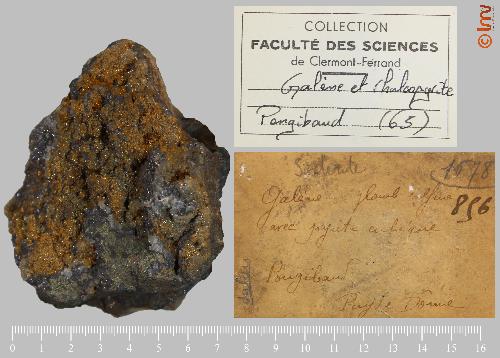 COLLECTION
FACULTÉ DES SCIENCES
de Clermont-Ferrand
Galène et chalcopyrite
Pongibaud (63)
Sidérite
1678
Galène plomb
856
avec pyrite
Pongibaud
Puy de Dôme
0 1 2 3 4 5 6 7 8 9 10 11 12 13 14 15 16